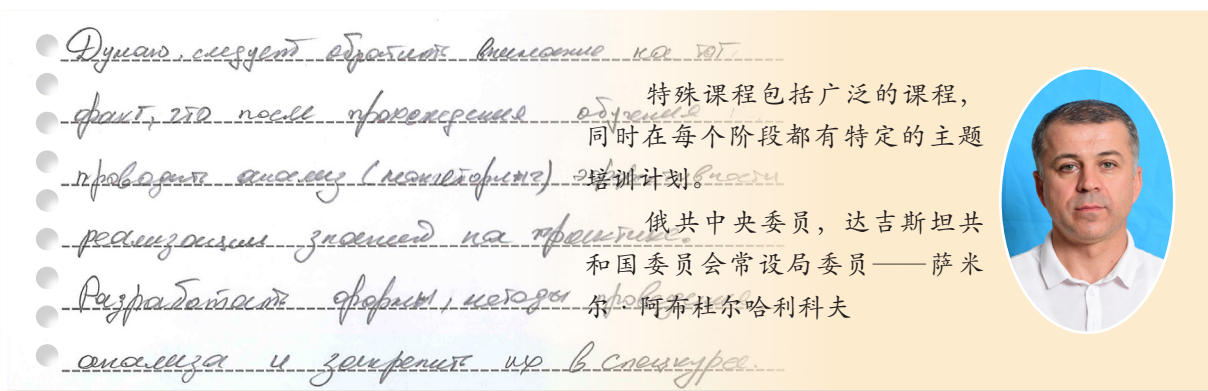 Думаю, следует обратить внимание на тот
факт, что после прохождения обучения
проводить анализ (мониторинг) эффективности
реализации знаний на практике.
Разработать формы, методы проведения
анализа и закрепить их в спецкурсе.
特殊课程包括广泛的课程，
同时在每个阶段都有特定的主题
培训计划。
俄共中央委员，达吉斯坦共
和国委员会常设局委员——萨米
尔·阿布杜尔哈利科夫